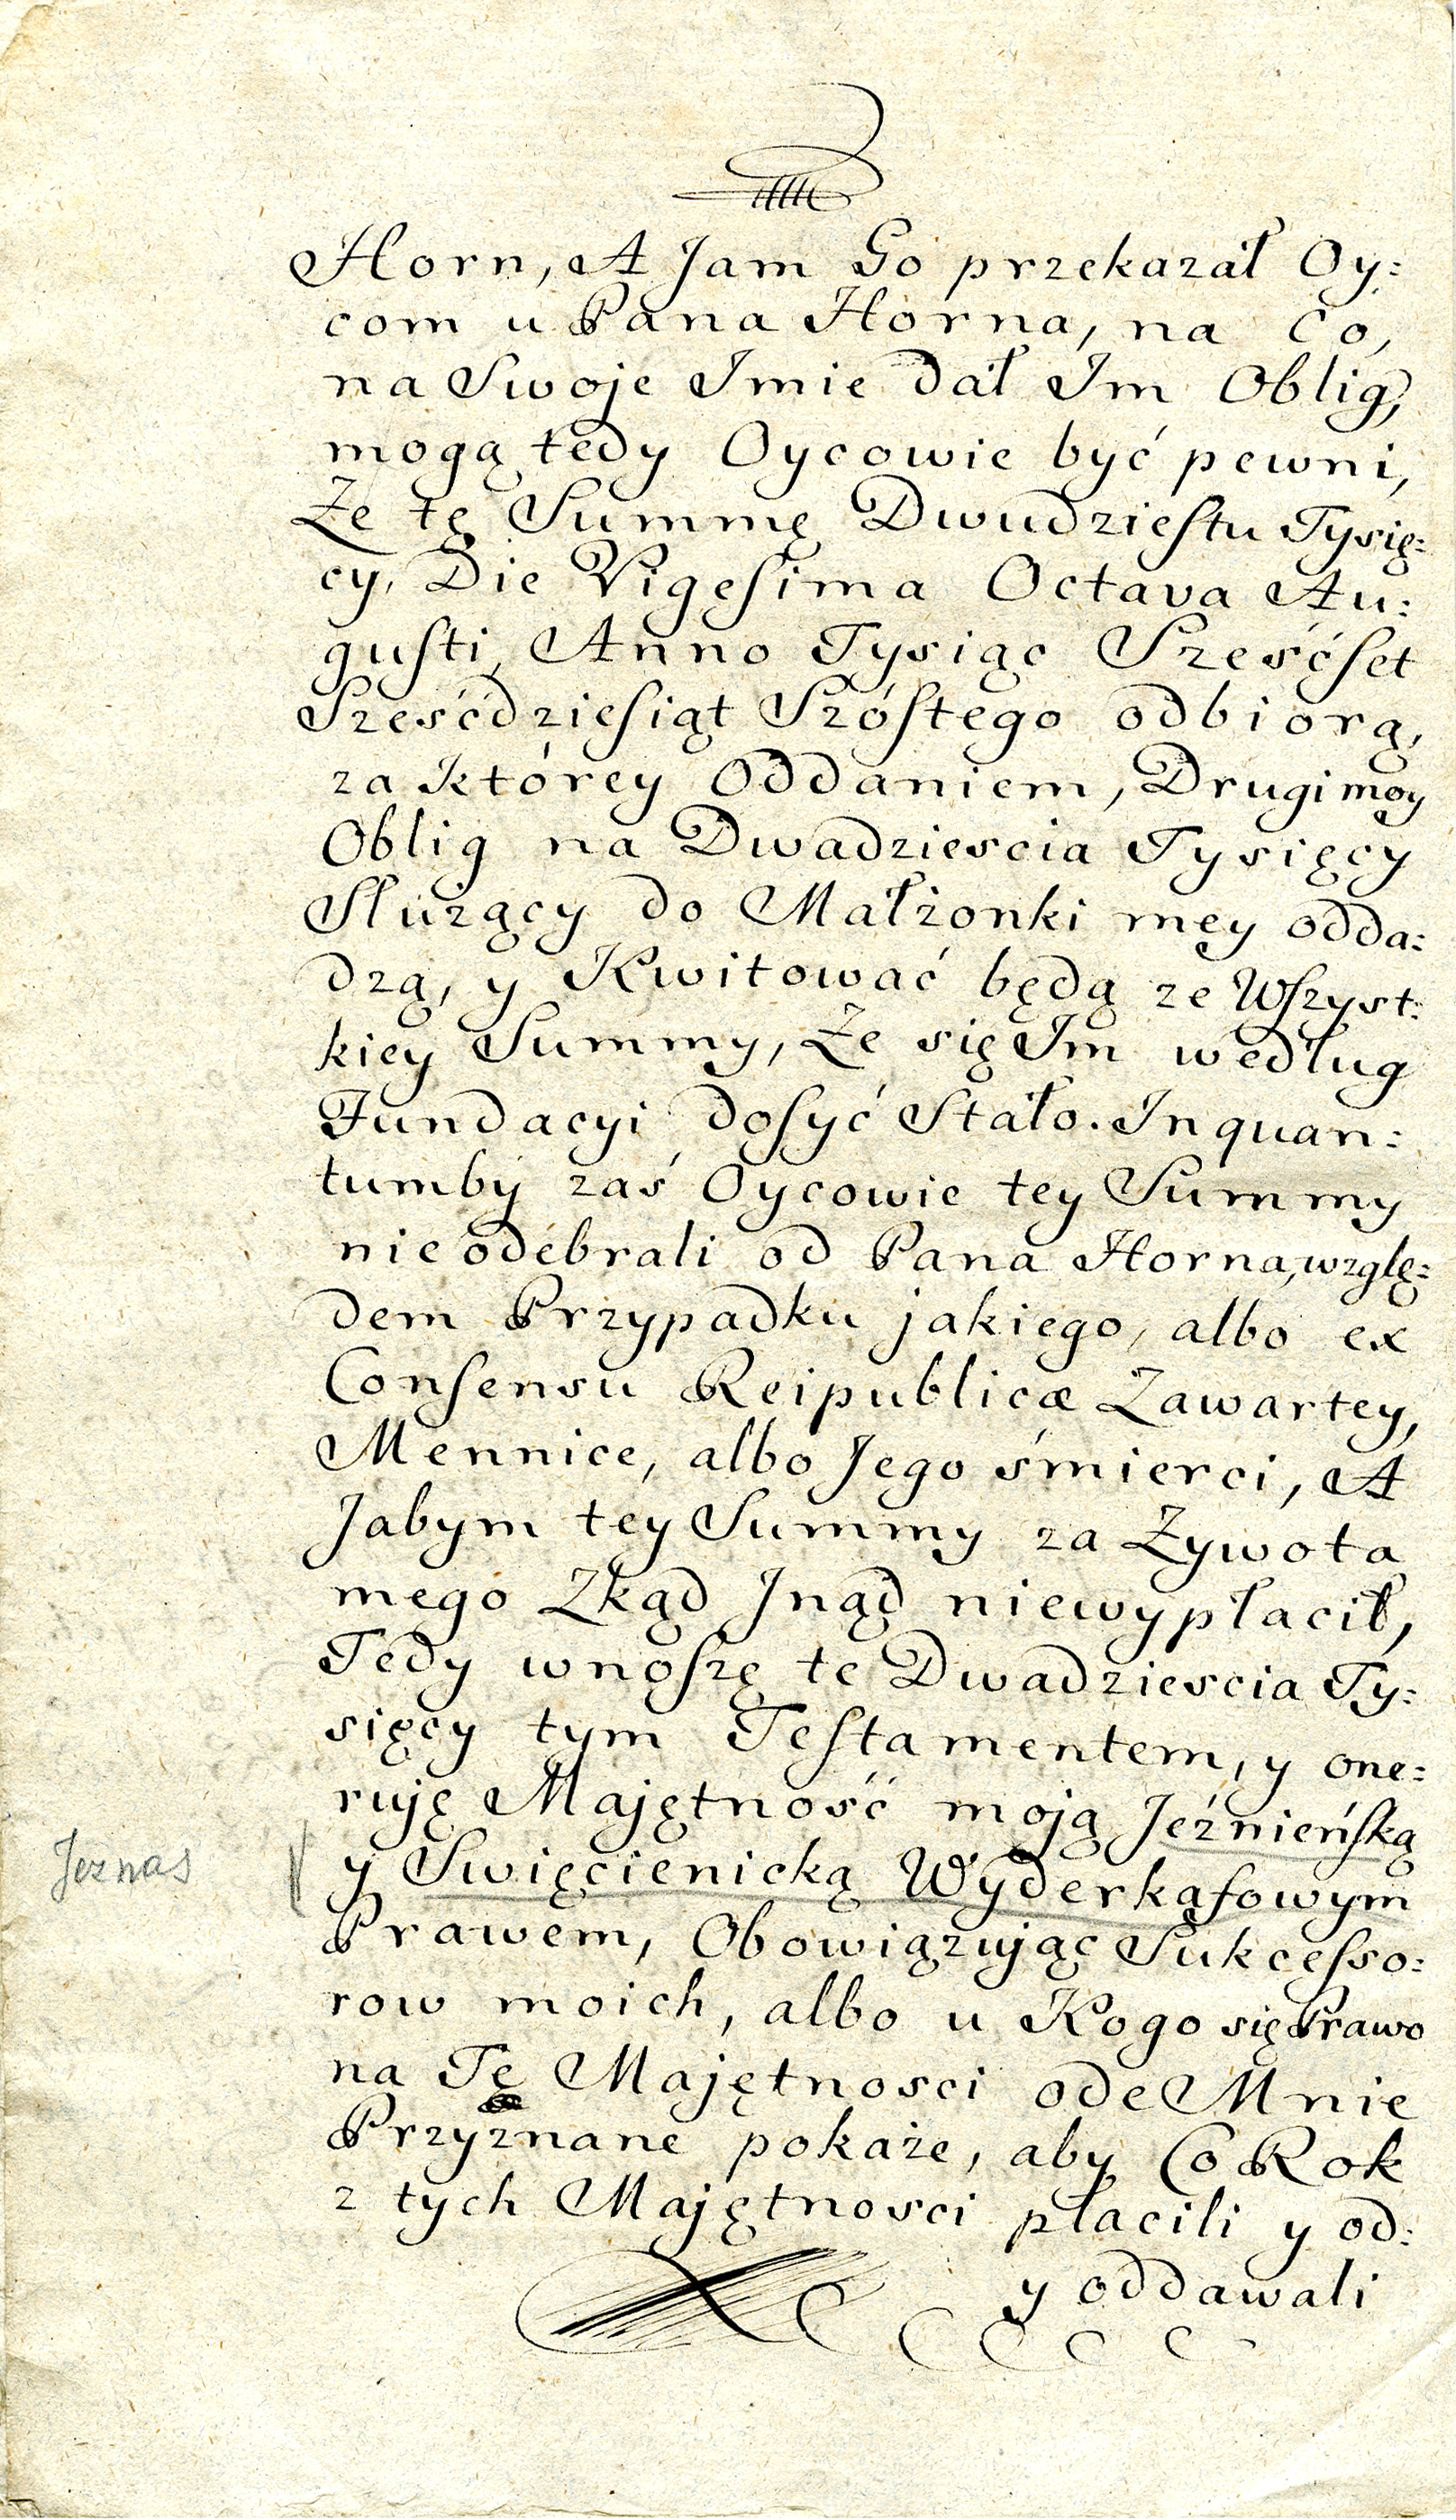 Horn, A Jam Go przekazał Oy:
com u Pana Horna, na Co,
na Swoje Jmie dał Jm Oblig,
mogą tedy Oycowie być pewni,
Że tę Summę Dwudzieſtu Tysię:
cy, Die Vigeſima Octava Au:
guſti, Anno Tysiąc Sześćſet
Sześćdzieſiąt Szóſtego odbiorą,
za którey Oddaniem, Drugi moy
Oblig na Dwadziescia Tysięcy
Służący do Małżonki mey odda:
dzą, y Kwitować będą ze Wſzyst:
kiey Summy, Że się Jm według
Fundacyi doſyć Stało. Jnquan:
tumby zaś Oycowie tey Summy
nie odebrali od Pana Horna, wzglę:
dem Przypadku jakiego, albo ex
Conſensu Reipublicæ Zawartey,
Mennice, albo Jego śmierci, A
Jabym tey Summy za Żywota
mego Zkąd Jnąd niewypłacił,
Tedy wnoſzę te Dwadziescia Ty:
sięcy tym Teſtamentem, y one:
ruję Majętność moją Jeźnieńſką
Jeznas y Swięcienicką Wyderkafowym
Prawem, Obowiązując Sukceſso:
row moich, albo u Kogo się Prawo
na Tę Majętnosci ode Mnie
Przyznane pokaże, aby Co Rok
z tych Majętnosci płacili y od:
y oddawali